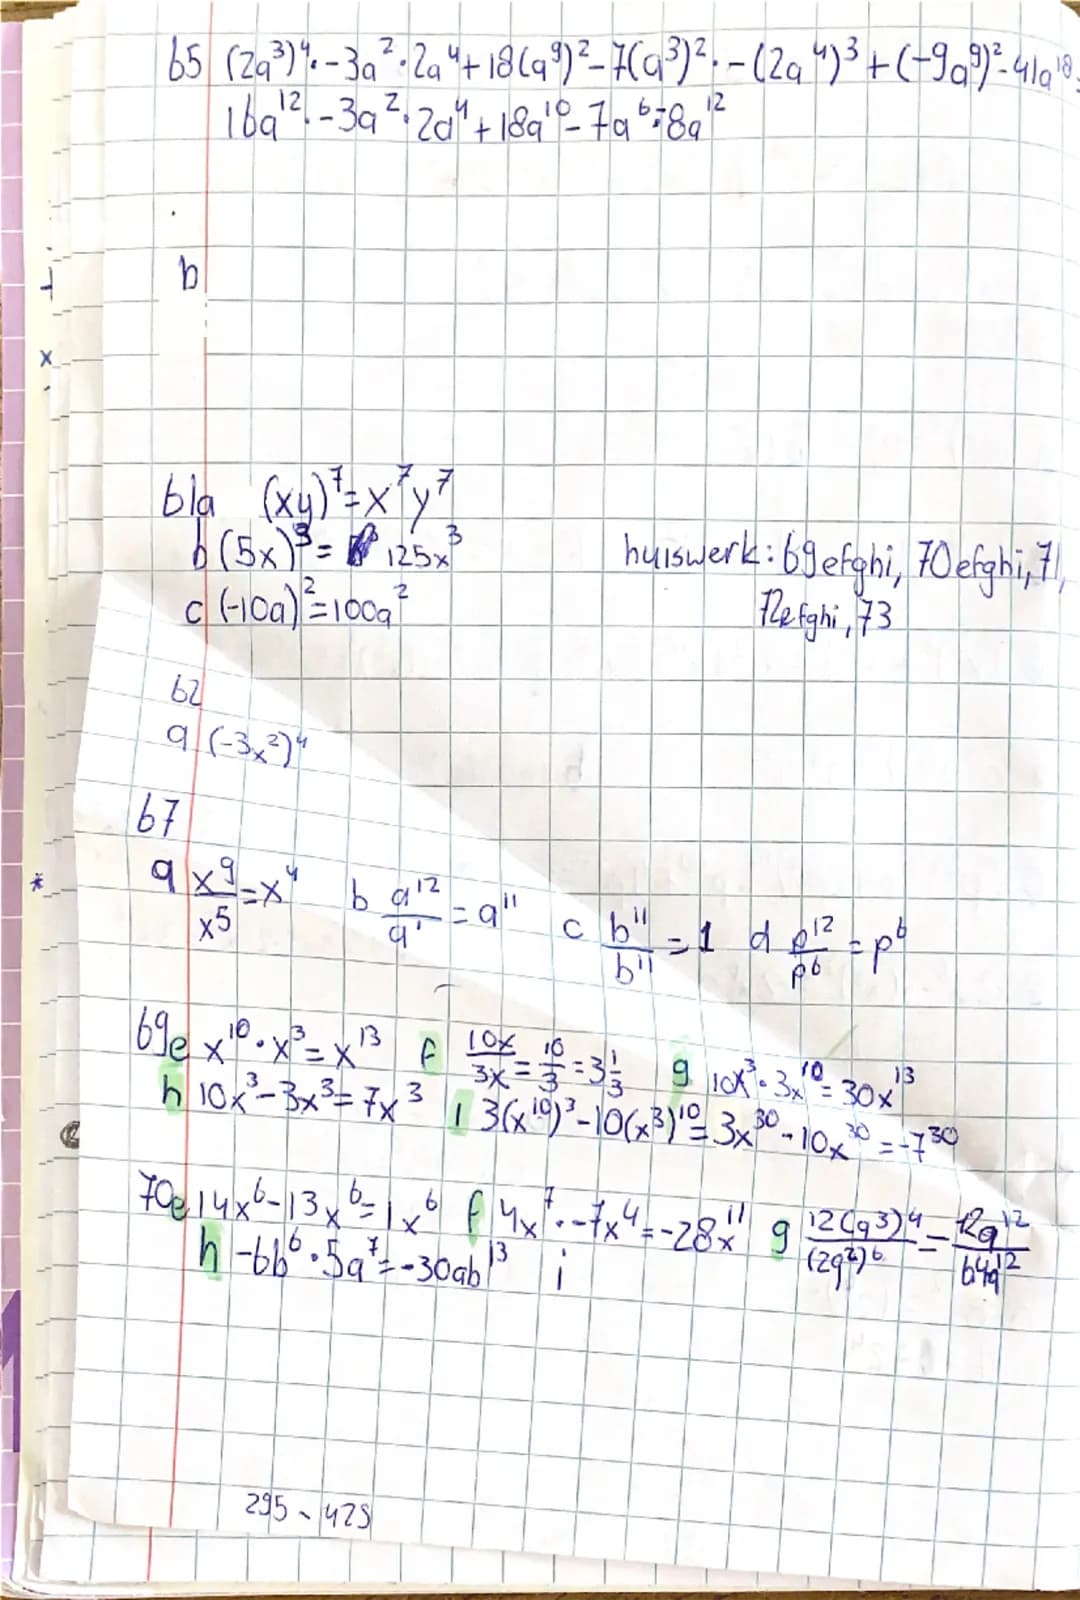 65 (2a³)⁴·-3a²·2a⁴+18(a⁹)²-7(a³)²·-(2a⁴)³+(-9a⁹)²-41a¹⁸
16a¹²·-3a²·2a⁴+18a¹⁰-7a⁶·-8a¹²
b
61a (xy)⁷=x⁷y⁷
b (5x)³= 125x³
c (-10a)²=100a²
huiswerk: 69efghi, 70efghi, 71,
72efghi, 73
62
a (-3x²)⁴
67
a x⁹/x⁵=x⁴ b a¹²/a¹=a¹¹ c b¹¹/b¹¹=1 d p¹²/p⁶=p⁶
69e x¹⁰·x³=x¹³ f 10x/3x=10/3=3⅓ g 10x³·3x¹⁰=30x¹³
h 10x³-3x³=7x³ i 3(x¹⁰)³-10(x³)¹⁰=3x³⁰-10x³⁰=-7³⁰
70e 14x⁶-13x⁶=1x⁶ f 4x⁷·-7x⁴=-28x¹¹ g 12(a³)⁴/(2a²)⁶=12a¹²/64a¹²
h -6b⁶·5a⁷=-30ab¹³ i
295-425